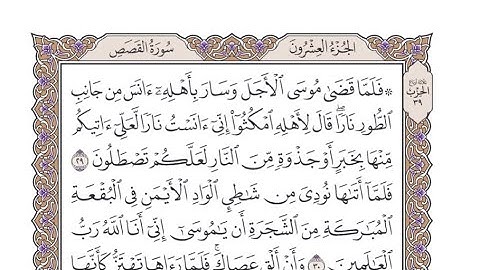 سُورَةُ القَصَصِ الجُزْءُ العِشْرُونَ
۞ فَلَمَّا قَضَىٰ مُوسَى ٱلْأَجَلَ وَسَارَ بِأَهْلِهِۦٓ ءَانَسَ مِن جَانِبِ
ٱلطُّورِ نَارًاۖ قَالَ لِأَهْلِهِ ٱمْكُثُوٓاْ إِنِّيٓ ءَانَسْتُ نَارًا لَّعَلِّيٓ ءَاتِيكُم
مِّنْهَا بِخَبَرٍ أَوْ جَذْوَةٍ مِّنَ ٱلنَّارِ لَعَلَّكُمْ تَصْطَلُونَ ٢٩
فَلَمَّآ أَتَىٰهَا نُودِيَ مِن شَٰطِيِٕ ٱلْوَادِ ٱلْأَيْمَنِ فِي ٱلْبُقْعَةِ
ٱلْمُبَٰرَكَةِ مِنَ ٱلشَّجَرَةِ أَن يَٰمُوسَىٰٓ إِنِّيٓ أَنَا ٱللَّهُ رَبُّ
ٱلْعَٰلَمِينَ ٣٠ وَأَنْ أَلْقِ عَصَاكَۖ فَلَمَّا رَءَاهَا تَهْتَزُّ كَأَنَّهَا
ثلاثة أرباع
الحزب
٣٩